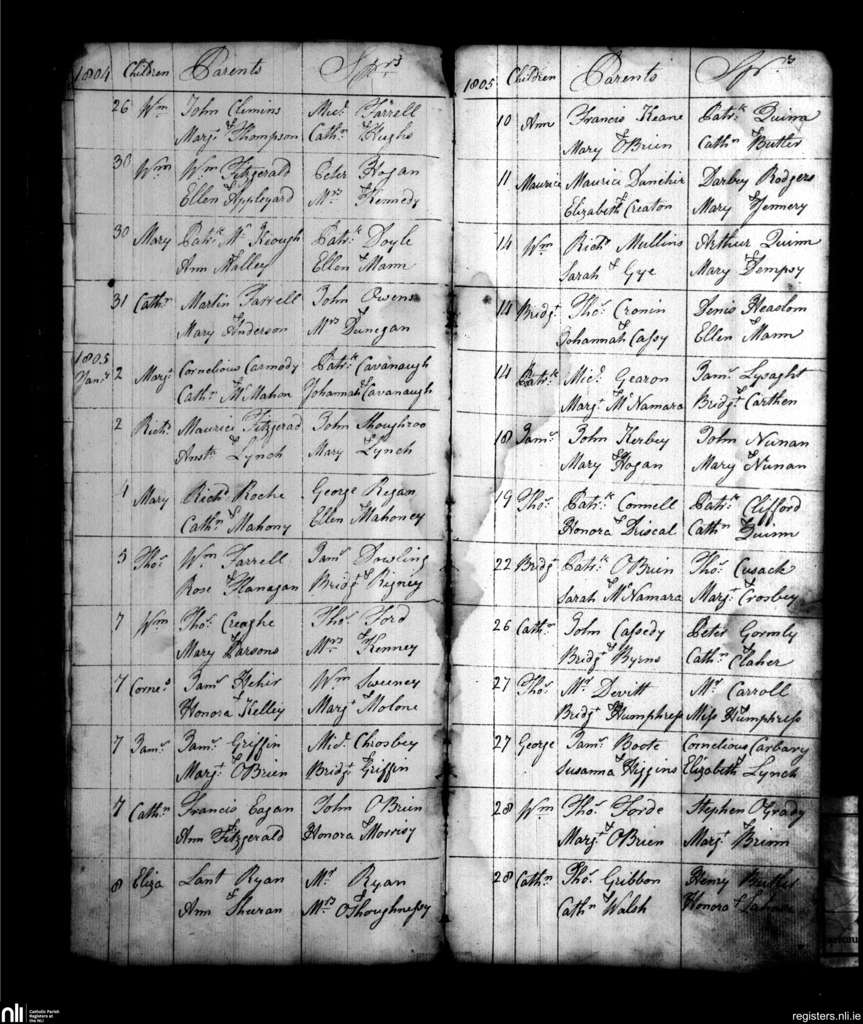 1804 Children Parents Sprs
26 Wm John Clemins Micl Farrell
Margt & Thompson Cathn & Hughs
30 Wm Wm Fitzgerald Peter Hogan
Ellen & Appleyard Mrs & Kennedy
30 Mary Patrk Mc Keough Patrk Doyle
Ann & Malley Ellen & Mann
31 Cathn Martin Farrell John Owens
Mary & Anderson Mrs & Dunegan
1805
Jany 2 Margt Cornelious Carmody Patrk Cavanaugh
Cathn & McMahon Johannah & Cavanaugh
2 Richd Maurice Fitzgerad John
Anstc & Lynch Mary & Lynch
4 Mary Richd Roche George Regan
Cathn & Mahony Ellen & Mahoney
5 Thos Wm Farrell Jams Dowling
Rose & Flanagan Bridgt & Rigney
7 Wm Thos Creaghe Thos Ford
Mary & Parsons Mrs & Kenney
7 Corns Jams Hehir Wm Sweeney
Honora & Kelley Margt & Molone
7 Jams Jams Griffin Micl Chrosbey
Margt & OBrien Bridgt & Griffin
7 Cathn Francis Eagan John OBrien
Ann & Fitzgerald Honora & Morrisy
8 Eliza Lant Ryan Mr Ryan
Ann & Mrs & OShoughnessy
1805 Children Parents Sprs
10 Ann Francis Keane Patrk Quinn
Mary & OBrien Cathn & Butler
11 Maurice Maurice Darbey Rodgers
Elizabeth & Creaton Mary &
14 Wm Richd Mullins Arthur Quinn
Sarah & Gye Mary & Dempsy
14 Bridgt Thos Cronin Denis Headlom
Johannah & Cassy Ellen & Mann
14 Patrk Micl Gearon Jams Lysaght
Margt & McNamara Bridgt & Carthen
18 Jams John Kerbey John Nunan
Mary & Hogan Mary & Nunan
19 Thos Patrk Connell Patrk Clifford
Honora & Driscal Cathn & Quinn
22 Bridgt Patrk OBrien Thos Cusack
Sarah & McNamara Margt & Crosbey
26 Cathn John Cassedy Peter Gormly
Bridgt & Byrns Cathn & Claher
27 Thos Mr Devitt Mr Carroll
Bridgt & Humphress Miss & Humphress
27 George Jams Boote Cornelious Carbary
Susanna & Higgins Elizabeth & Lynch
28 Wm Thos Forde Stephen OGrady
Margt & OBrien Margt & Brinn
28 Cathn Thos Gribbon Henry Butler
Cathn & Walsh Honora &
nli Catholic Parish
Registers at
the NLI
registers.nli.ie